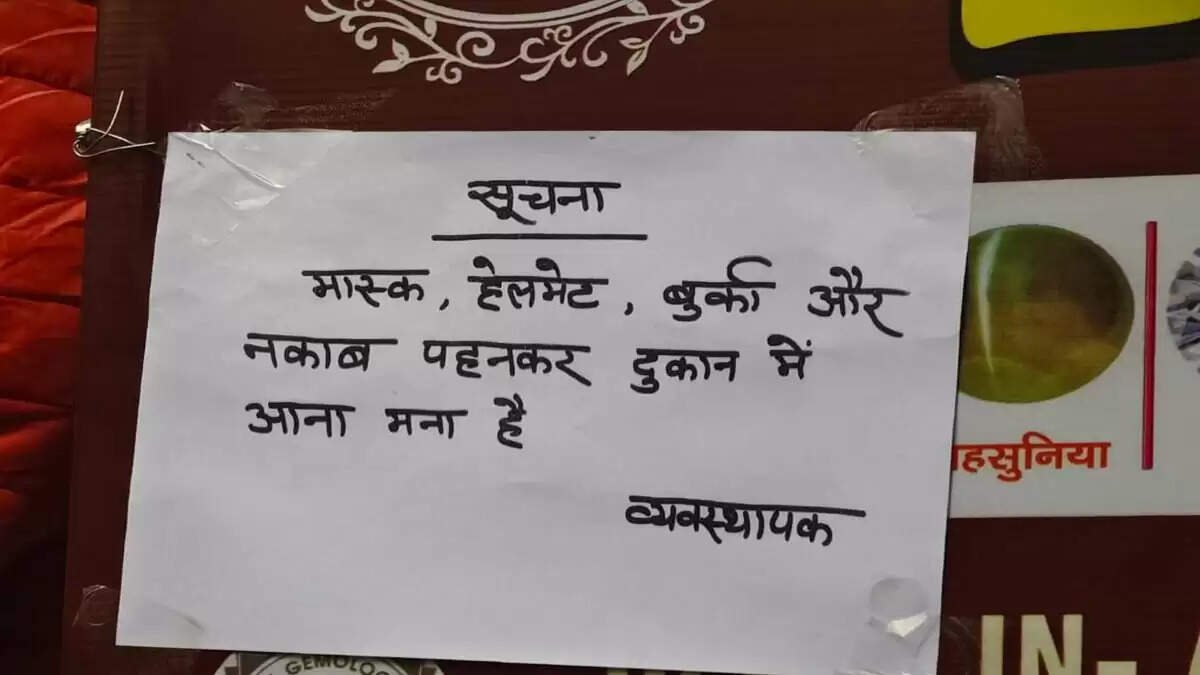 सूचना
मास्क, हेलमेट, बुर्का और
नकाब पहनकर दुकान में
आना मना है
व्यवस्थापक
हसुनिया
GEMOLOG
IN-